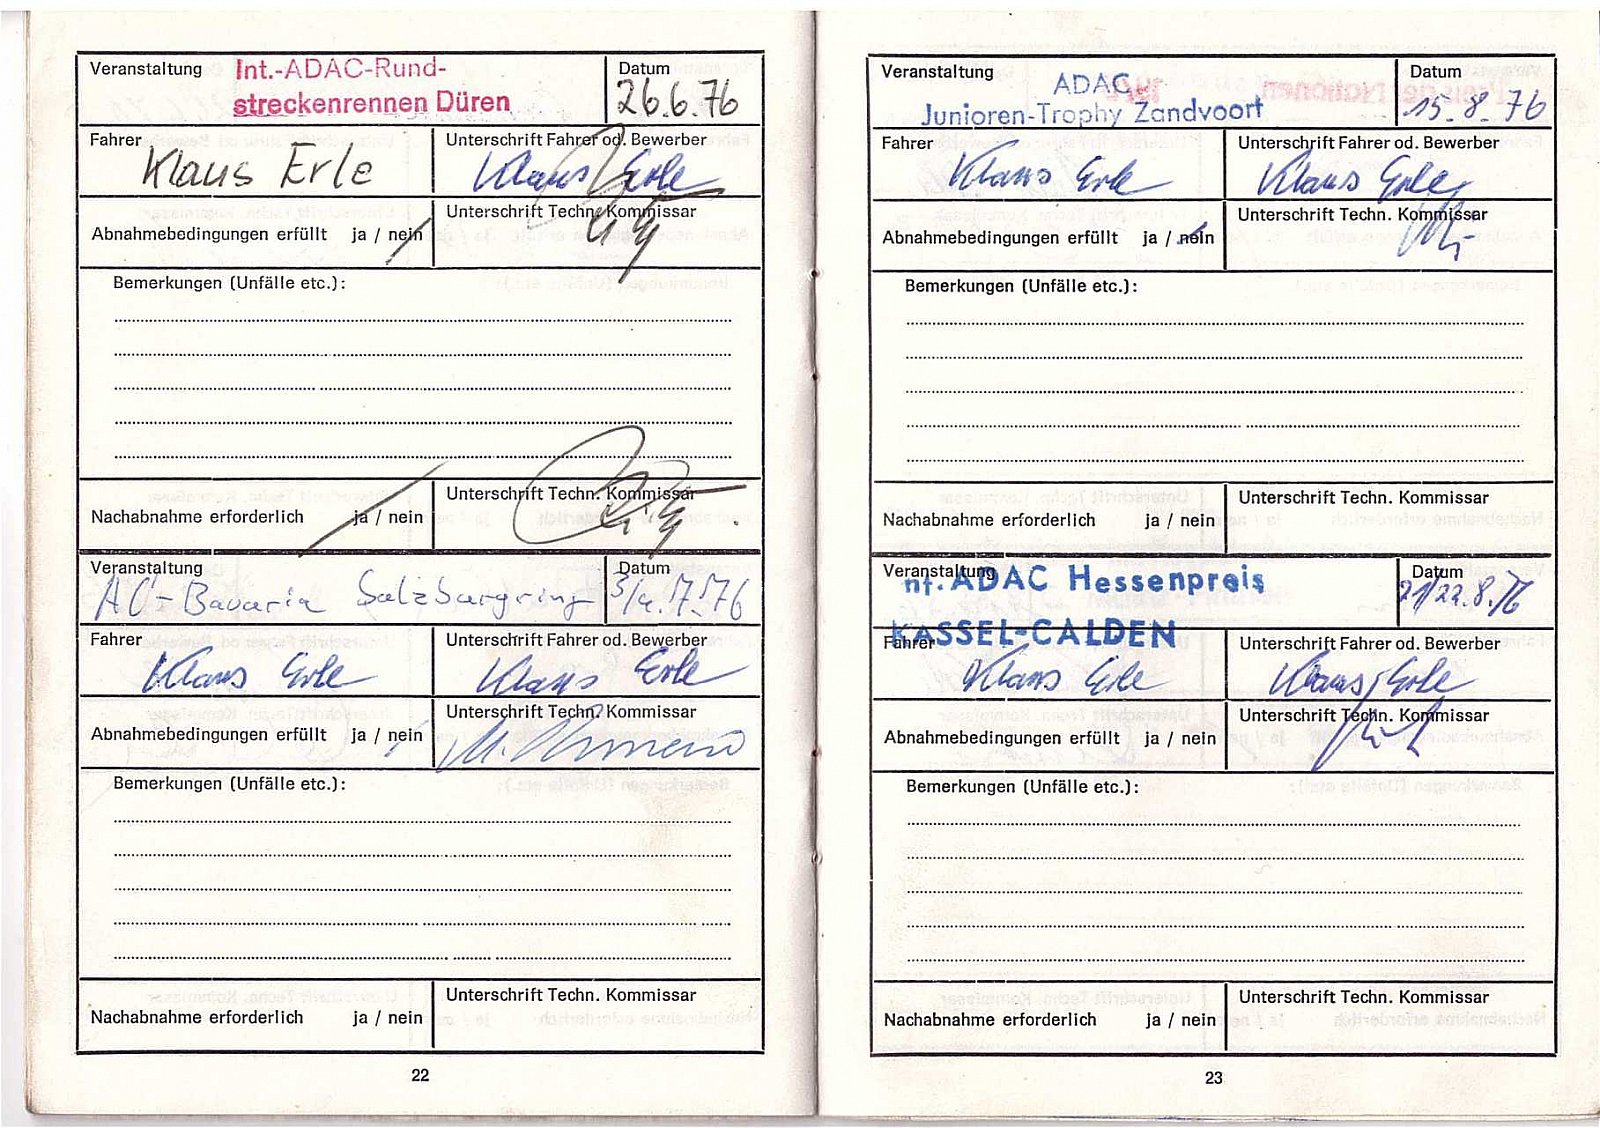 Veranstaltung Int.-ADAC-Rund-
streckenrennen Düren
Datum
26.6.76
Fahrer
Klaus Erle
Unterschrift Fahrer od. Bewerber
Klaus Erle
Abnahmebedingungen erfüllt ja / nein
Unterschrift Techn. Kommissar
Bemerkungen (Unfälle etc.):
Nachabnahme erforderlich ja / nein
Unterschrift Techn. Kommissar
Veranstaltung
AC-Bavaria Salzburgring
Datum
3/4.7.76
Fahrer
Klaus Erle
Unterschrift Fahrer od. Bewerber
Klaus Erle
Abnahmebedingungen erfüllt ja / nein
Unterschrift Techn. Kommissar
Bemerkungen (Unfälle etc.):
Nachabnahme erforderlich ja / nein
Unterschrift Techn. Kommissar
22
Veranstaltung
ADAC
Junioren-Trophy Zandvoort
Datum
15.8.76
Fahrer
Klaus Erle
Unterschrift Fahrer od. Bewerber
Klaus Erle
Abnahmebedingungen erfüllt ja / nein
Unterschrift Techn. Kommissar
Bemerkungen (Unfälle etc.):
Nachabnahme erforderlich ja / nein
Unterschrift Techn. Kommissar
Veranstaltung
nt. ADAC Hessenpreis
KASSEL-CALDEN
Datum
21/22.8.76
Fahrer
Klaus Erle
Unterschrift Fahrer od. Bewerber
Klaus Erle
Abnahmebedingungen erfüllt ja / nein
Unterschrift Techn. Kommissar
Bemerkungen (Unfälle etc.):
Nachabnahme erforderlich ja / nein
Unterschrift Techn. Kommissar
23